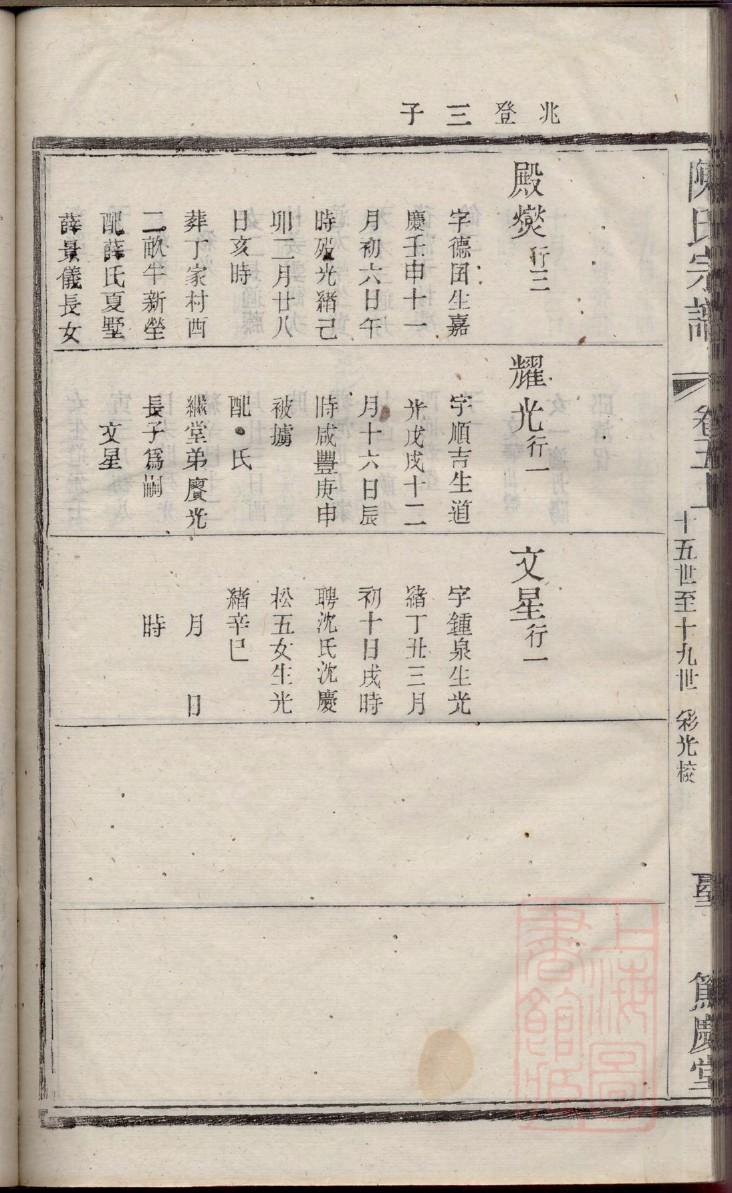 兆登三子
陳氏宗譜
卷五
十五世至十九世 彩光校
篤慶堂
殿爕行三
字德囯生嘉
慶壬申十一
月初六日午
時殁光緒己
卯二月廿八
日亥時
葬丁家村酉
二畝牛新塋
配薛氏夏墅
薛景儀長女
耀光行一
字順吉生道
光戊戌十二
月十六日辰
時咸豐庚申
被擄
配 氏
繼堂弟賡光
長子爲嗣
文星
文星行一
字鍾泉生光
緒丁丑三月
初十日戌時
聘沈氏沈慶
松五女生光
緒辛巳
月 日
時
上海圖書館藏